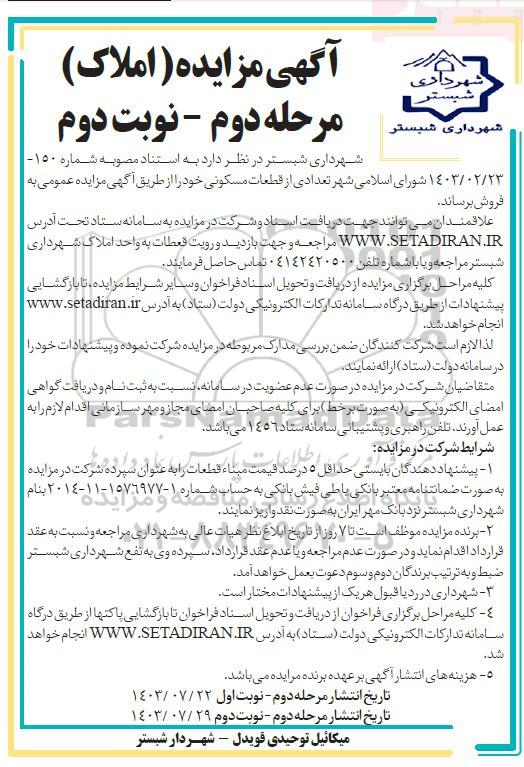 آگهی مزایده (املاک)
مرحله دوم - نوبت دوم
شهرداری شبستر
شهرداری شبستر
شهرداری شبستر در نظر دارد به استناد مصوبه شماره ۱۵۰-
۱۴۰۳/۰۲/۲۳ شورای اسلامی شهر تعدادی از قطعات مسکونی خود را از طریق آگهی مزایده عمومی به
فروش برساند.
علاقمندان می توانند جهت دریافت اسناد و شرکت در مزایده به سامانه ستاد تحت آدرس
WWW.SETADIRAN.IR مراجعه و جهت بازدید و رویت قطعات به واحد املاک شهرداری
شبستر مراجعه و یا با شماره تلفن ۰۴۱۴۲۴۲۰۵۰۰ تماس حاصل فرمایند.
کلیه مراحل برگزاری مزایده از دریافت و تحویل اسناد فراخوان و سایر شرایط مزایده، تا بازگشایی
پیشنهادات از طریق درگاه سامانه تدارکات الکترونیکی دولت (ستاد) به آدرس www.setadiran.ir
انجام خواهد شد.
لذا لازم است شرکت کنندگان ضمن بررسی مدارک مربوطه در مزایده شرکت نموده و پیشنهادات خود را
در سامانه دولت (ستاد) ارائه نمایند.
متقاضیان شرکت در مزایده در صورت عدم عضویت در سامانه، نسبت به ثبت نام و دریافت گواهی
امضای الکترونیکی (به صورت برخط) برای کلیه صاحبان امضای مجاز و مهر سازمانی اقدام لازم را به
عمل آورند. تلفن راهبری و پشتیبانی سامانه ستاد ۱۴۵۶ می باشد.
شرایط شرکت در مزایده:
۱- پیشنهاد دهندگان بایستی حداقل ۵ درصد قیمت مبناء قطعات را به عنوان سپرده شرکت در مزایده
به صورت ضمانتنامه معتبر بانکی یا طی فیش بانکی به حساب شماره ۱-۱۵۷۶۹۷۷-۱۱-۲۰۱۴ بنام
شهرداری شبستر نزد بانک مهر ایران به صورت نقد واریز نمایند.
۲- برنده مزایده موظف است تا ۷ روز از تاریخ ابلاغ نظر هیات عالی به شهرداری مراجعه و نسبت به عقد
قرارداد اقدام نماید و در صورت عدم مراجعه و یا عدم عقد قرارداد، سپرده وی به نفع شهرداری شبستر
ضبط و به ترتیب برندگان دوم و سوم دعوت بعمل خواهد آمد.
۳- شهرداری در رد یا قبول هر یک از پیشنهادات مختار است.
۴- کلیه مراحل برگزاری فراخوان از دریافت و تحویل اسناد فراخوان تا بازگشایی پاکتها از طریق درگاه
سامانه تدارکات الکترونیکی دولت (ستاد) به آدرس WWW.SETADIRAN.IR انجام خواهد
شد.
۵- هزینه های انتشار آگهی بر عهده برنده مزایده می باشد.
تاریخ انتشار مرحله دوم - نوبت اول ۱۴۰۳/۰۷/۲۲
تاریخ انتشار مرحله دوم - نوبت دوم ۱۴۰۳/۰۷/۲۹
میکائیل توحیدی قویدل - شهردار شبستر